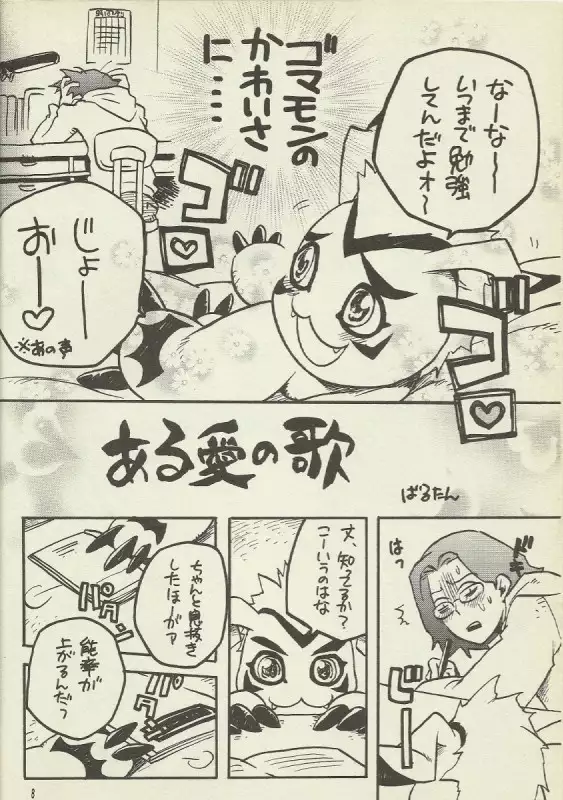 ゴマモンの
かわいさ
に……
なーな〜
いつまで勉強
してんだよォ〜
ゴロ
ゴロ
じょー
おー♡
※あの声
ある愛の歌
ばるたん
ドキ
はっ
じーっ
丈、知ってるか?
こーいうのはな
ちゃんと息抜き
したほーがァ
パタン
能率が
上がるんだっ
パタン
8